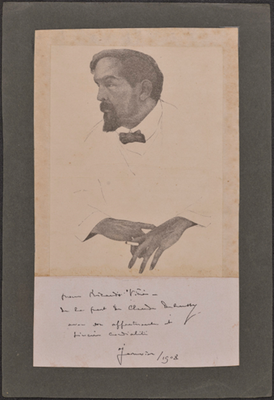 pour Ricardo Viñes –
de la part de Claude Debussy
avec son affectueuse et
sincère cordialité
Janvier/1908